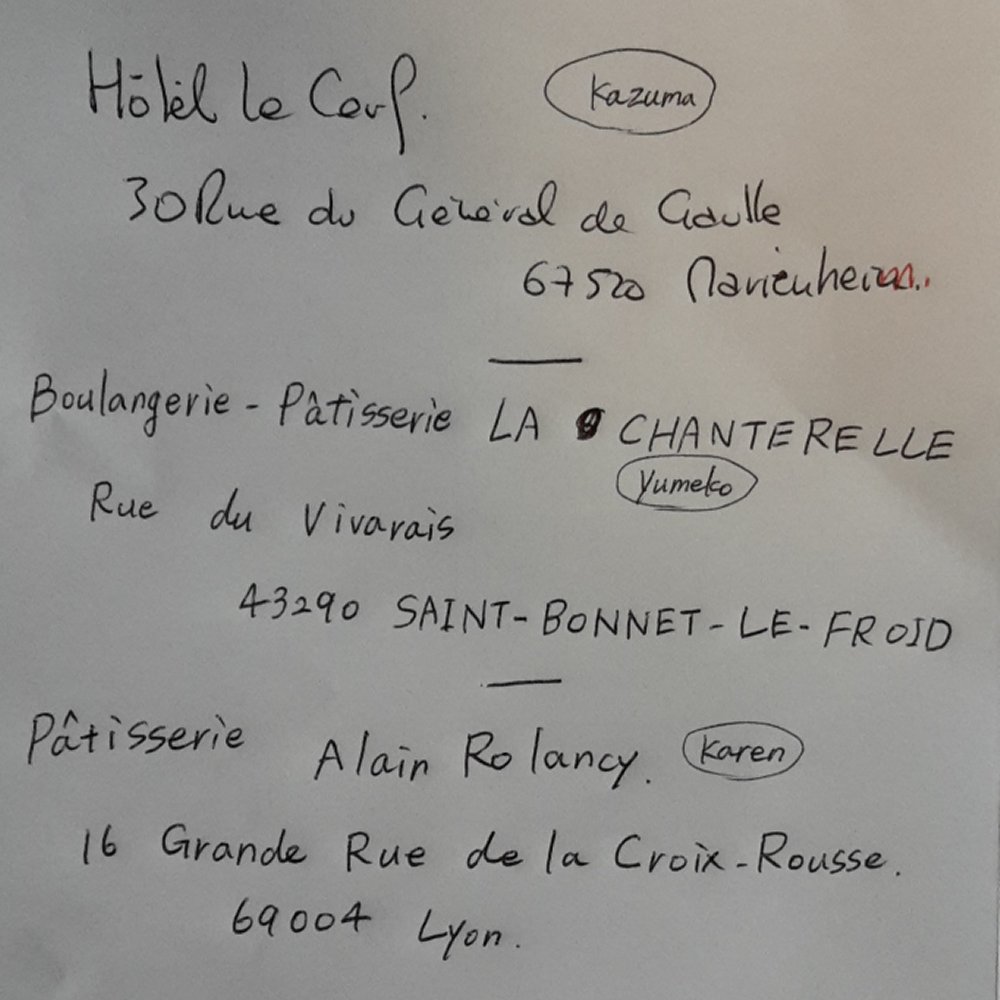 Hôtel Le Cerf. Kazuma
30 Rue du Général de Gaulle
67520 Marienheim..
Boulangerie - Pâtisserie LA CHANTERELLE
Yumeko
Rue du Vivarais
43290 SAINT-BONNET-LE-FROID
Pâtisserie Alain Rolancy. Karen
16 Grande Rue de la Croix-Rousse.
69004 Lyon.